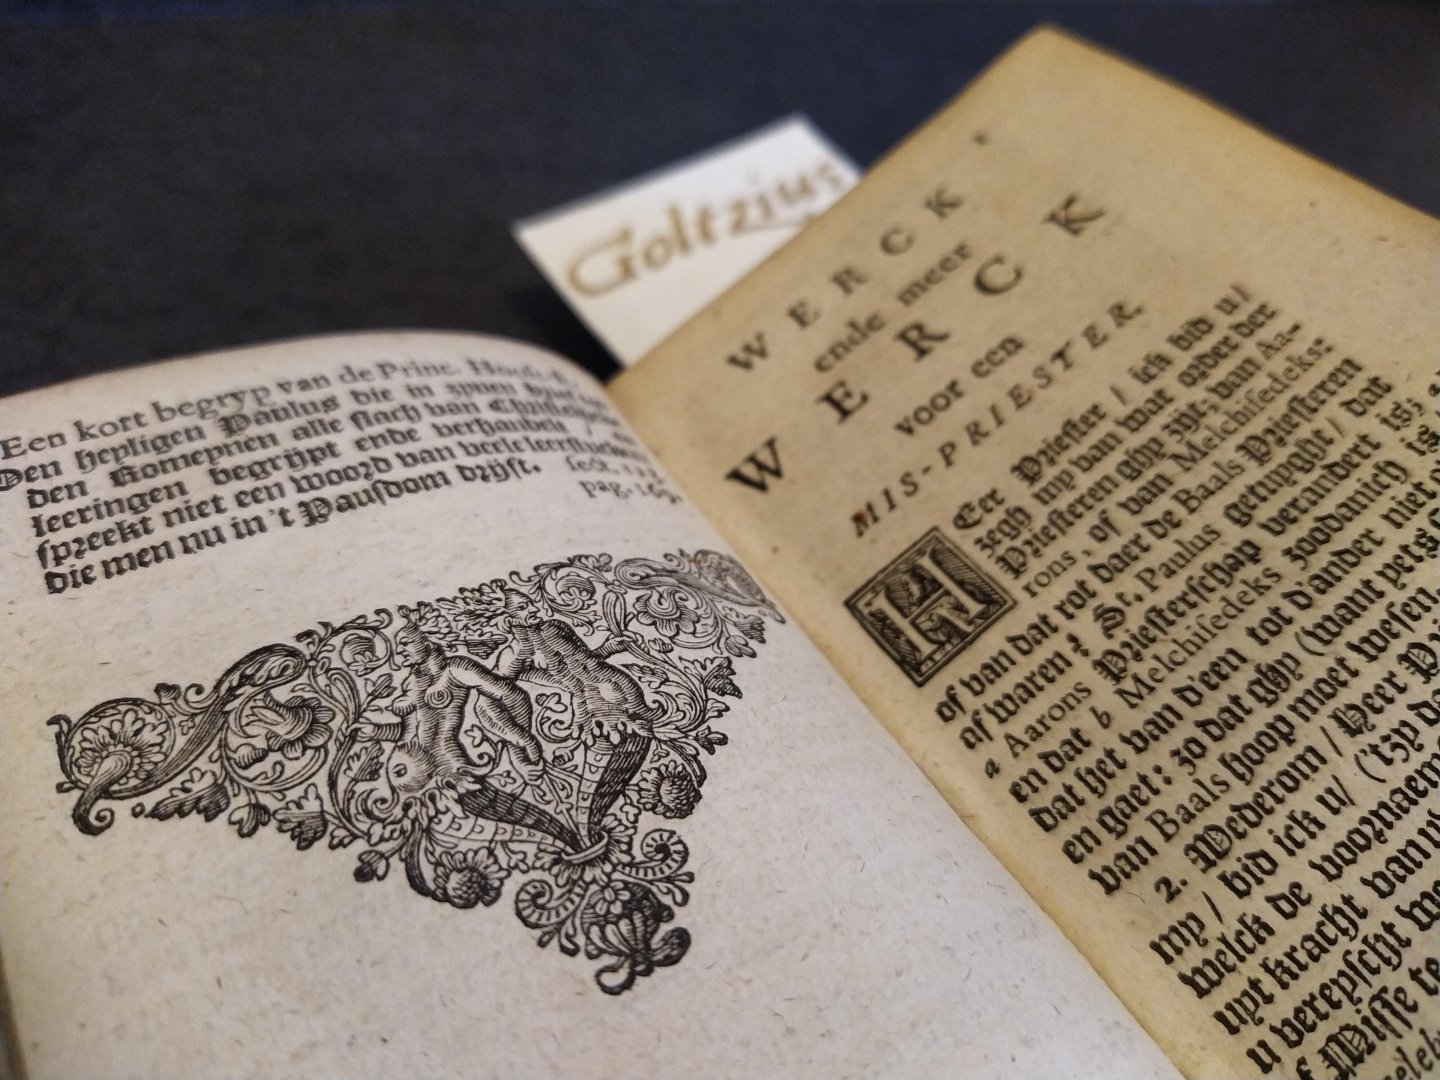 Goltzius
Een kort begryp van de Princ. Hooft-
Den heyligen Paulus die in zynen brief
den Romeynen alle slach van Christelyke
leeringen begrijpt ende verhandelt /
spreekt niet een woord van veele leerstucken
die men nu in 't Pausdom drijft. sect.
pag.
WERCK
ende meer
WERCK
voor een
MIS-PRIESTER.
HEer Priester / ick bid u /
zegh my van wat order der
Priesteren ghy zijt; van Aa-
rons, of van Melchisedeks:
of van dat rot daer de Baals Priesteren
af waren? St. Paulus getuyght / dat
a Aarons Priesterschap verandert is;
en dat b Melchisedeks zoodanich is /
dat het van d'een tot d'ander niet
en gaet: zo dat ghy (want yets
van Baals hoop moet wesen.
2. Wederom / Heer
my / bid ick u / ('t zy
welck de voornaem
uyt kracht van
u vereyscht
Misse te